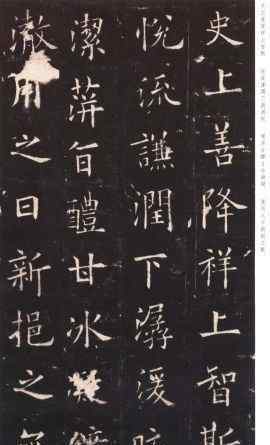 史上善降祥上智斯
悦流謙潤下潺湲皎
潔萍旨醴甘冰凝鏡
澈用之日新挹之無